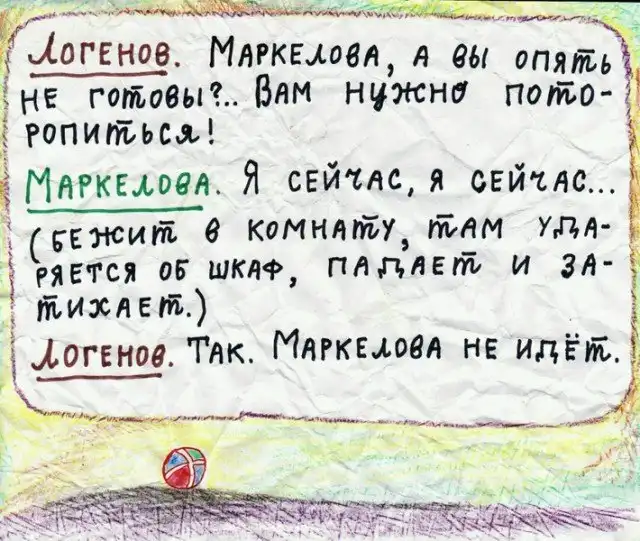 Логенов. Маркелова, а вы опять
не готовы?.. Вам нужно пото-
ропиться!
Маркелова. Я сейчас, я сейчас...
(бежит в комнату, там уда-
ряется об шкаф, падает и за-
тихает.)
Логенов. Так. Маркелова не идёт.